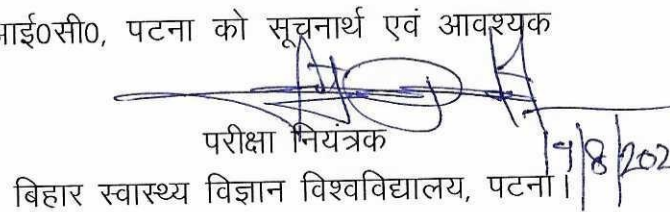 आई०सी०, पटना को सूचनार्थ एवं आवश्यक
परीक्षा नियंत्रक
बिहार स्वास्थ्य विज्ञान विश्वविद्यालय, पटना।